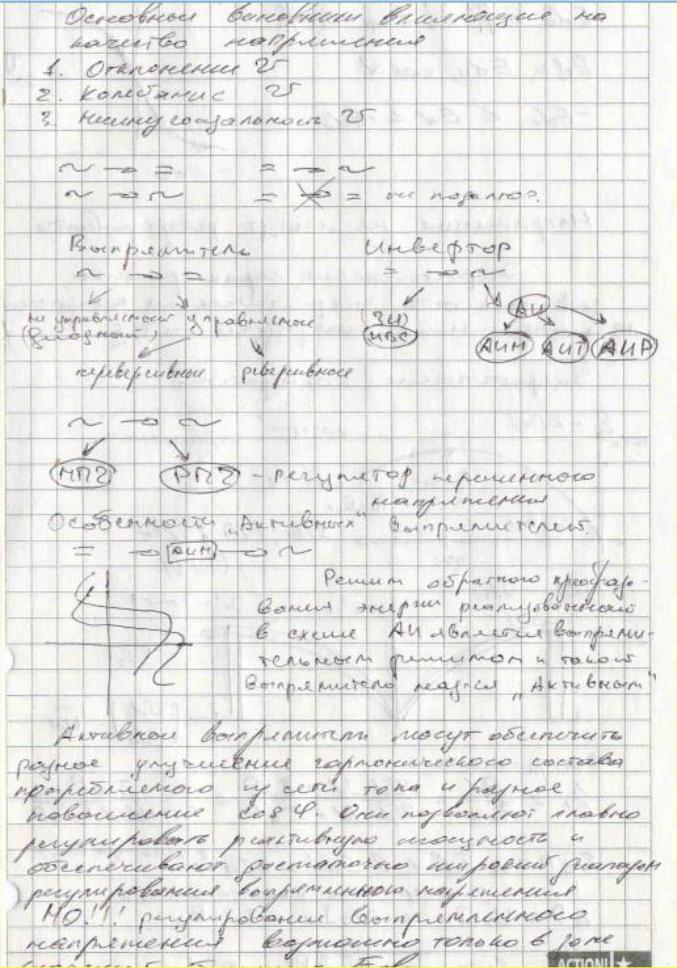 Основные виновники влияющие на
качество напряжения
1. Отклонение U
2. Колебание U
3. Несинусоидальность U
~ → = = → ~
~ → ~ = → =
Выпрямитель Инвертор
~ → = = → ~
не управляемый управляемые (ЗИ) АИ
(диодный) ИВС АИН АИТ АИР
нереверсивные реверсивные
~ → ~
НПЧ РПЧ - регулятор переменного
напряжения
Особенности „Активных" выпрямителей.
= → АИН → ~
Режим обратного преобразо-
вания энергии реализованный
в схеме АИ является выпрями-
тельным режимом и такой
выпрямитель наз-ся „Активным"
Активные выпрямители могут обеспечить
разное улучшение гармонического состава
потребляемого из сети тока и разное
повышение cos φ. Они позволяют плавно
регулировать реактивную мощность и
обеспечивают достаточно широкий диапазон
регулирования выпрямленного напряжения
НО!!! регулирование выпрямленного
напряжения возможно только в зоне
ACTION!